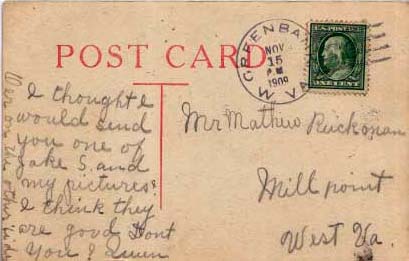 POST CARD
GREENBA
NOV
15
P.M
1909
W. VA
U.S. POSTAGE
ONE CENT
I thought I
would send
you one of
Jake S. and
my pictures?
I think they
are good Dont
You?
Wer on the other side
Mr Mathew Ruckman
Mill point
West Va.